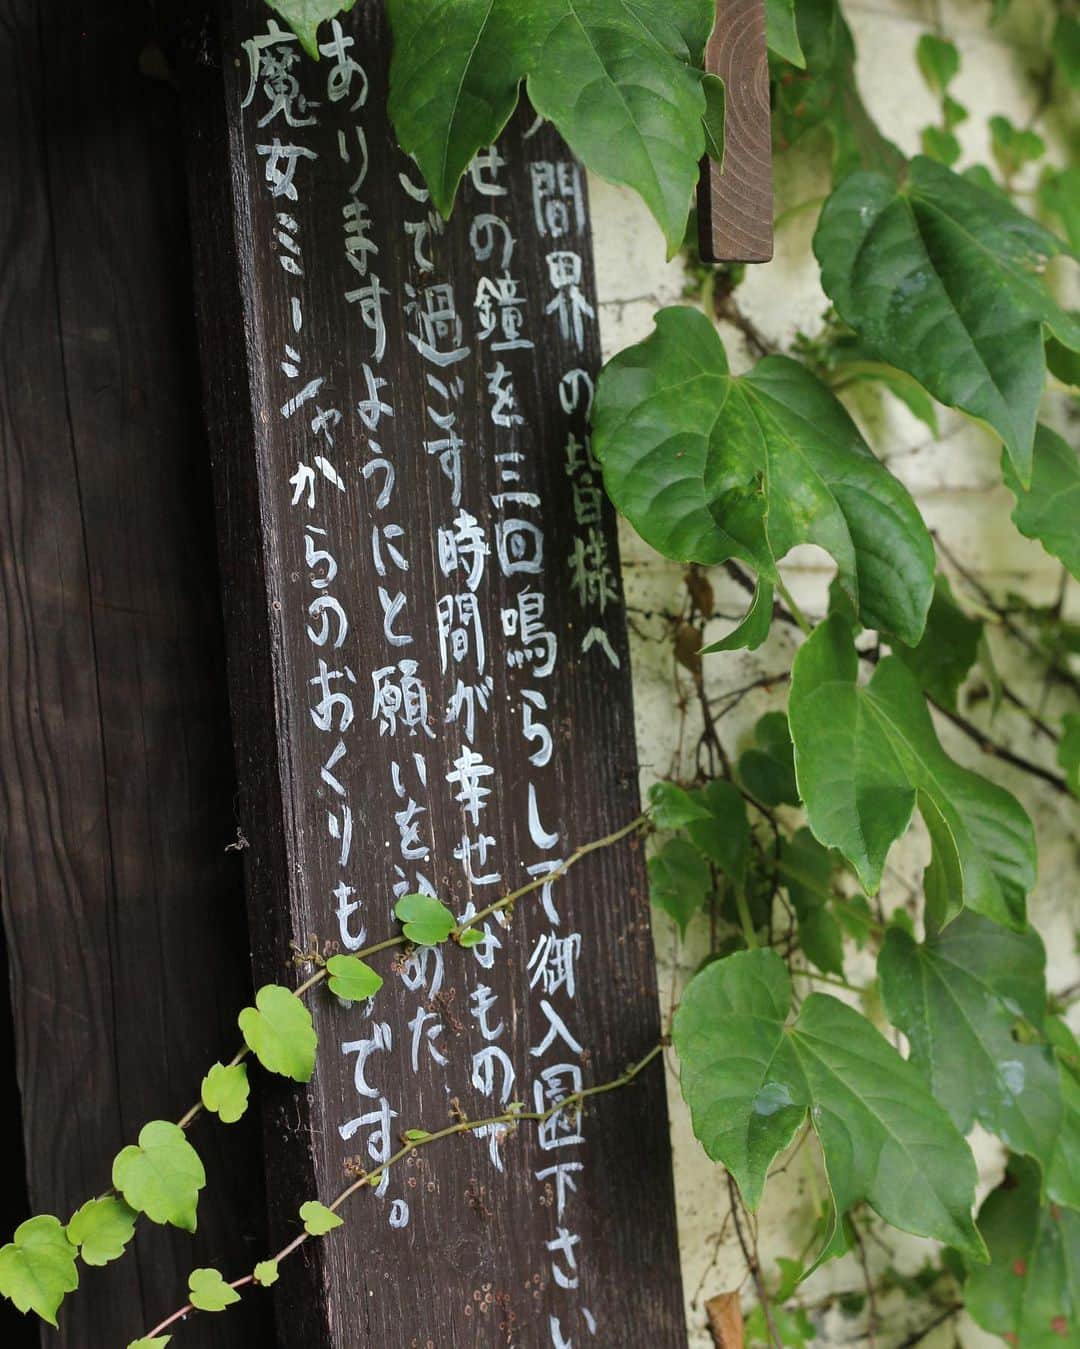 人間界の皆様へ
せの鐘を三回鳴らして御入園下さい
こで過ごす時間が幸せなもので
ありますようにと願いを込めた
魔女ミーシャからのおくりものです。